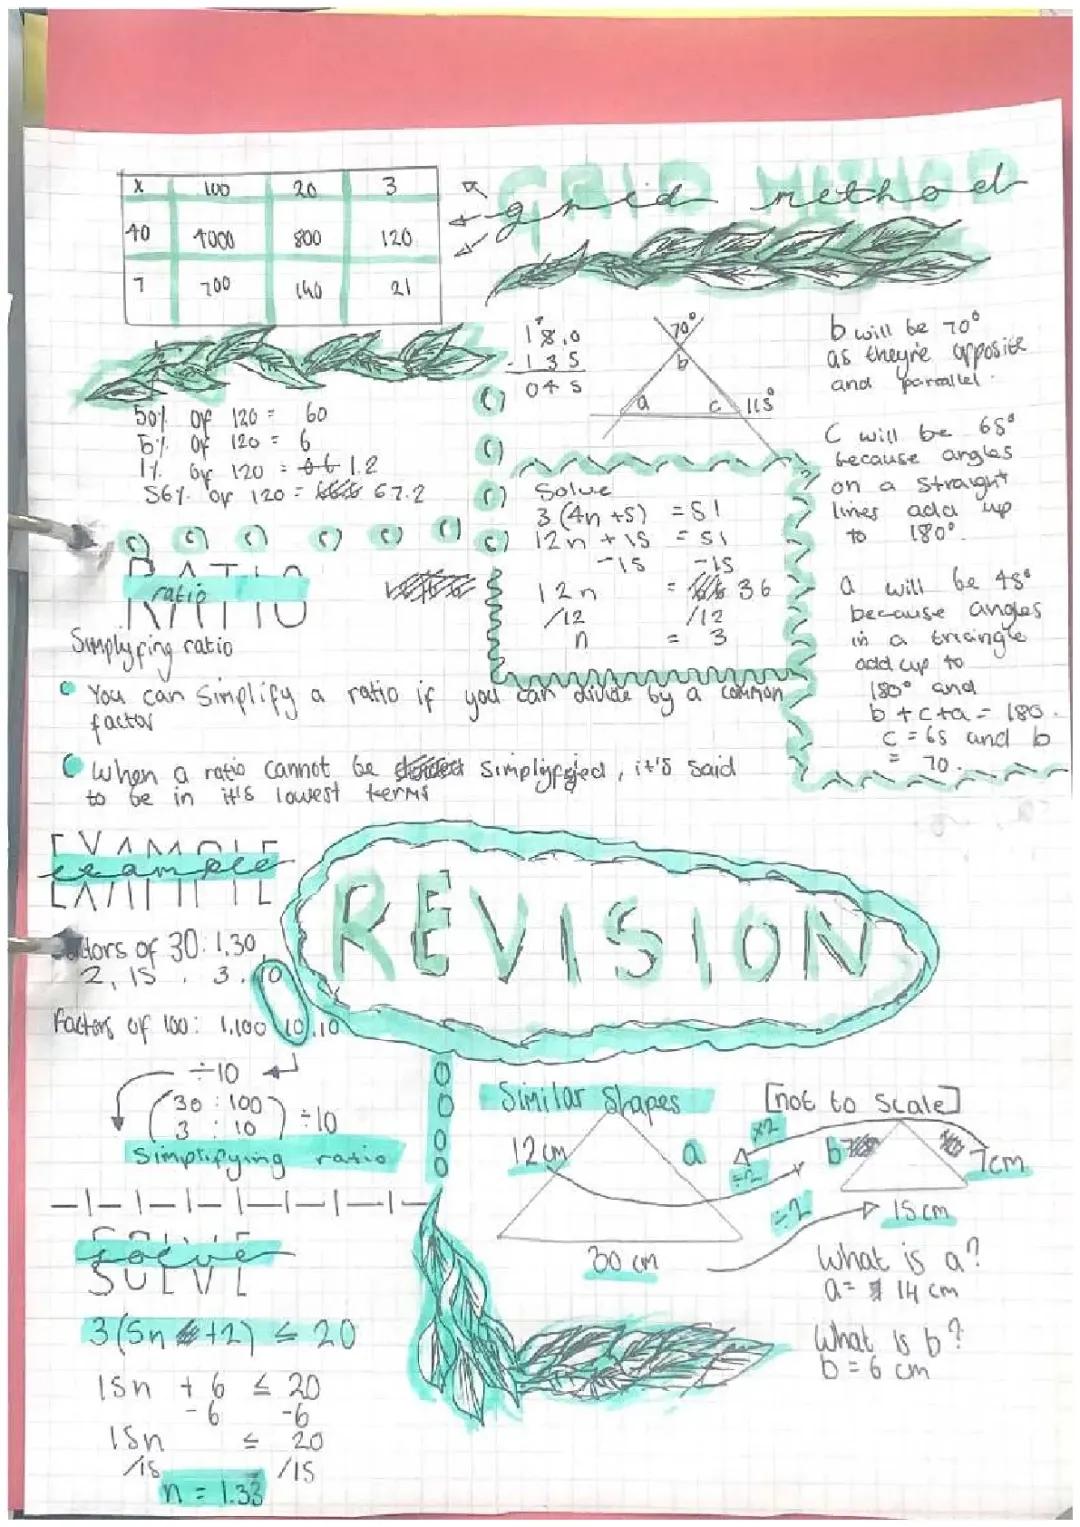 x 100 20 3
40 4000 800 120
7 700 140 21
GRID METHOD
grid method
50% of 120 = 60
5% of 120 = 6
1% of 120 = 1.2
56% of 120 = 67.2
18.0
- 135
045
70°
b
a c 115°
b will be 70°
as they're opposite
and parallel.
C will be 65°
because angles
on a straight
lines add up
to 180°.
a will be 45°
because angles
in a triangle
add up to
180° and
b + c + a = 180.
c = 65 and b
= 70.
Solve
3(4n +5) = 51
12n + 15 = 51
-15 -15
12n = 36
/12 /12
n = 3
RATIO
ratio
Simplyfing ratio
You can simplify a ratio if you can divide by a common
factor
When a ratio cannot be simplyfied, it's said
to be in it's lowest terms
EXAMPLE
example
factors of 30: 1,30,
2, 15, 3, 10
factors of 100: 1,100, 10,10
÷10
30 : 100
3 : 10
÷10
Simplifying ratio
REVISION
SOLVE
solve
3(5n +2) ≤ 20
15n + 6 ≤ 20
-6 -6
15n ≤ 20
/15 /15
n = 1.33
Similar shapes [not to scale]
12cm a x2 ÷2 b 7cm
÷2 15cm
30 cm
What is a?
a = 14 cm
What is b?
b = 6 cm